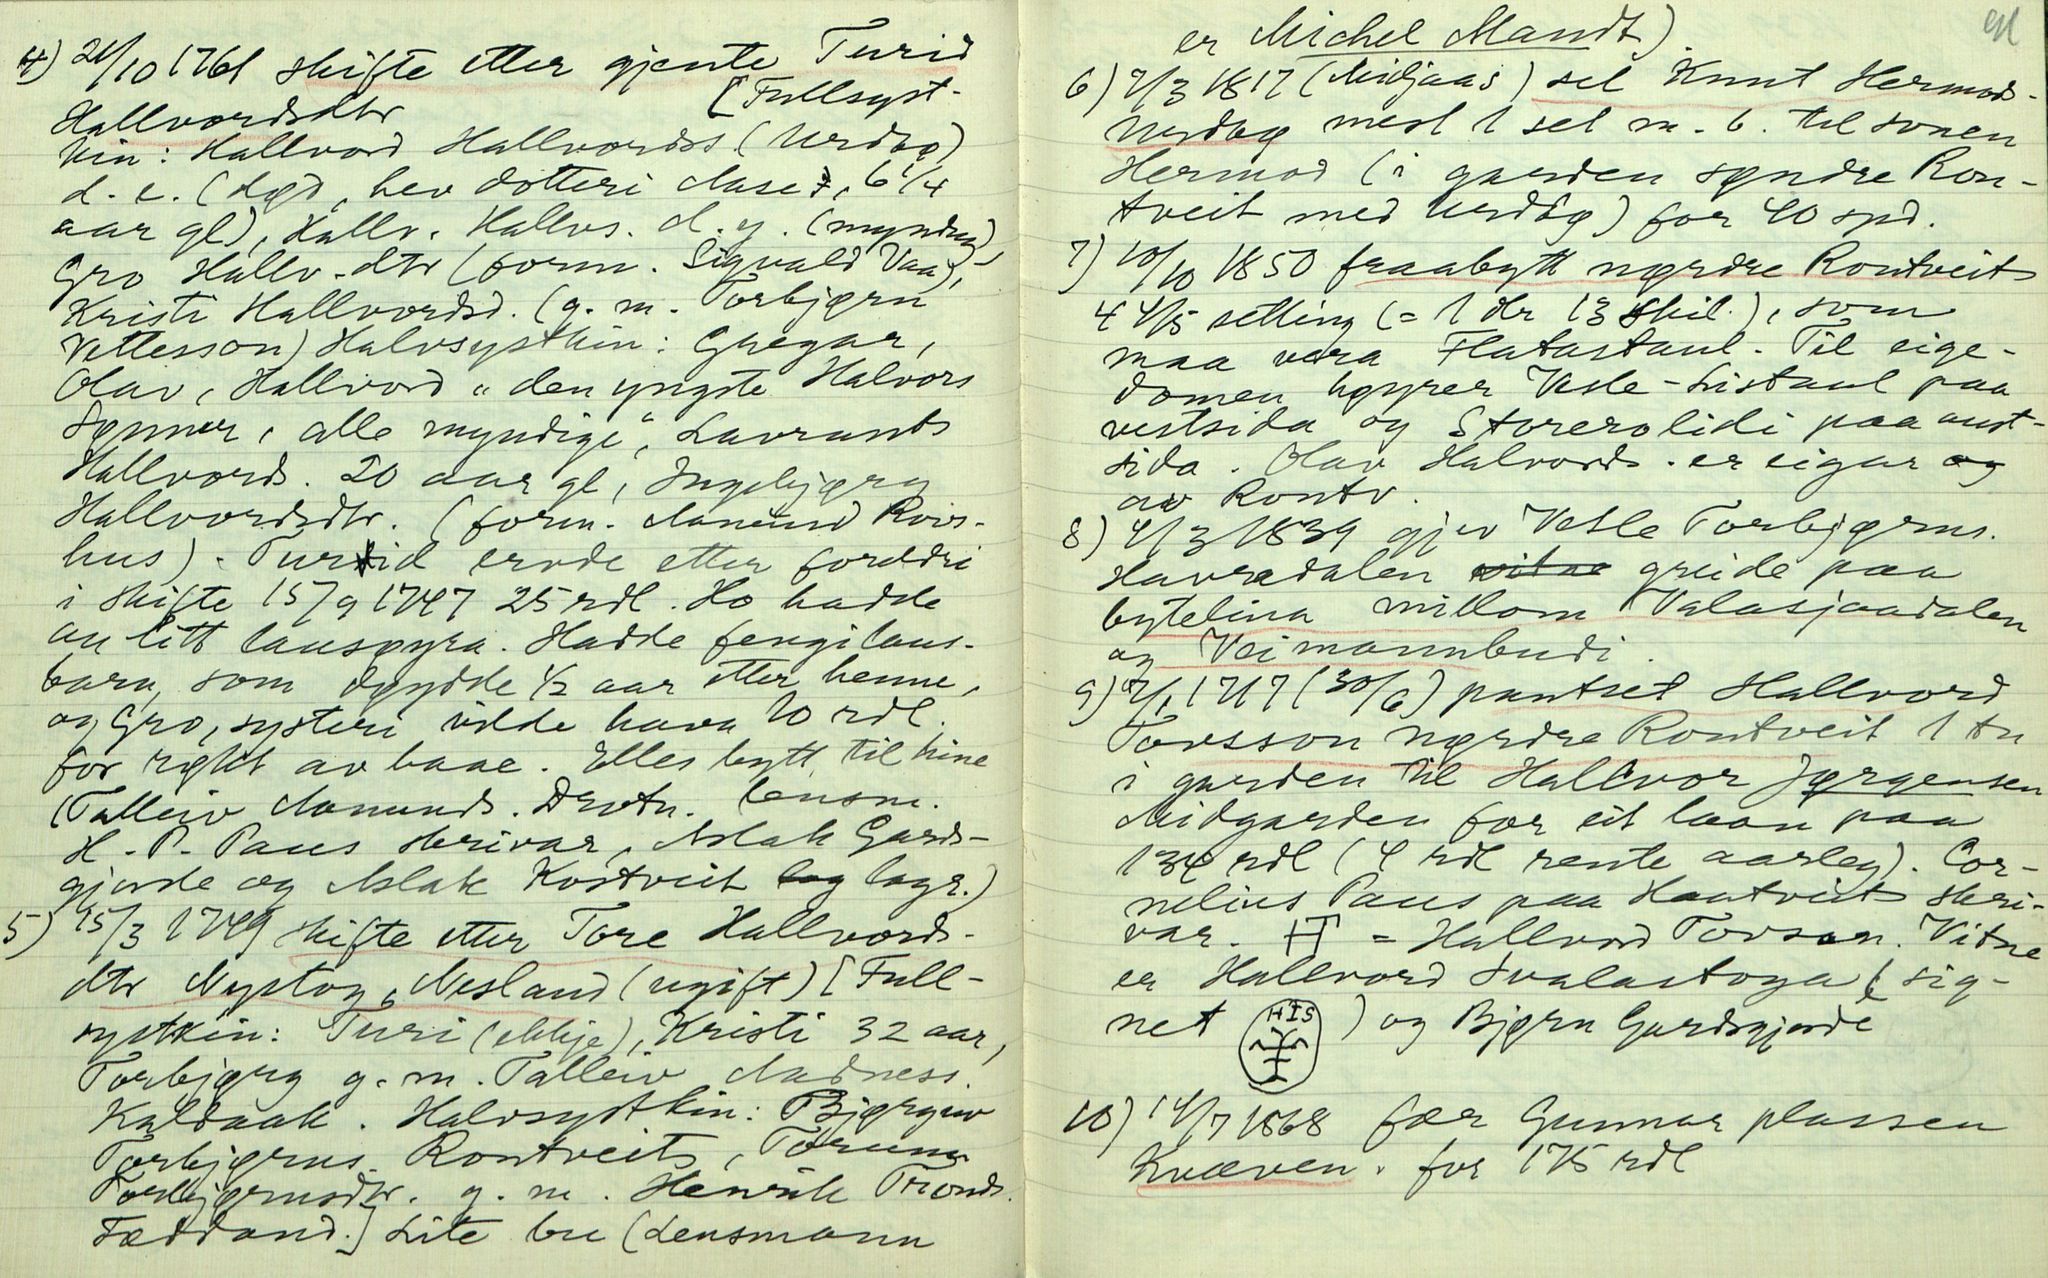 4) 21/10 1761 skifte etter gjente Turid
Hallvordsdtr [Fullsyst-
kin: Hallvord Hallvordss (Urdbø)
d. e. (død, hev dotteri Aase, 6 1/4
aar gl), Hallv. Hallvs. d. y. (myndug),
Gro Hallv.dtr (form. Sigvald Vaa),
Kristi Hallvordsd. (g. m. Torbjørn
Vettesson) Halvsystkin: Gregar,
Olav, Hallvord "den yngste Halvors
Sønner, alle myndige", Lavrants
Hallvords. 20 aar gl, Ingebjørg
Hallvordsdtr. (form. Aamund Rois-
hus). Turid ervde etter foreldri
i skifte 15/9 1747 25 rdl. Ho hadde
au litt lausøyra. Hadde fengi laus-
barn, som døydde 1/2 aar etter henne,
og Gro, systeri vilde hava 10 rdl.
for røkt av baae. Elles bytt til hine
(Talleiv Aamunds. Drotn. lensm.
H. P. Paus skrivar, Aslak Gards-
gjorde og Aslak Kostveit lagr.)
5) 15/3 1749 skifte etter Tore Hallvords-
dtr Nystog, Mesland (ugift) [Full-
systkin: Turi (ekkje), Kristi 32 aar,
Torbjørg g. m. Talleiv Aadness.
Kaldaak. Halvsystkin: Bjørguv
Torbjørns. Rontveit, Torunn
Torbjørnsdtr. g. m. Henrik Tronds.
Fæddand.] Lite bu (Lensmann
er Michel Mandt).
6) 7/3 1817 (Midjaas) sel Knut Hermods-
Urdbø med 1 sel m. 6. til sonen
Hermod (i garden søndre Ron-
tveit med Urdbø) for 40 spd.
7) 10/10 1850 fraabytt nørdre Rontveit
4 4/5 setting (= 1 dr 13 skil.), som
maa vera Flatastaul. Til eige-
domen høyrer Vesle-Listaul paa
vestsida og Storerolidi paa aust-
sida. Olav Halvords. er eigar
av Rontv.
8) 4/3 1839 gjev Vetle Torbjørns.
Havradalen greide paa
bytelina millom Valasjaadalen
og Veimannbudi.
9) 7/1 1717 (30/6) pantset Hallvord
Tovsson nørdre Rontveit 1 tn
i garden til Hallvor Jørgensen
Midgarden for eit laan paa
134 rdl (4 rdl rente aarleg). Cor-
nelius Paus paa Hantveit skri-
var. HT = Hallvord Tovson. Vitne
er Hallvord Svalastoga (sig-
net HIS) og Bjørn Gardsgjorde
10) 14/7 1868 fær Gunnar plassen
Kvæven. for 175 rdl